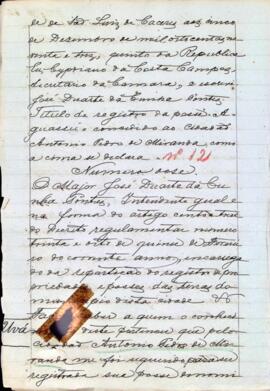 de de São Luiz de Caceres aos cinco
de Dezembro de mil oito centos no
venta e tres, quinto da Republica
Eu, Cypriano da Costa Campos,
Secretario da Camara, e escrevi
José Duarte da Cunha Pontes,
Titulo de registro da posse A-
guassú - concedido ao Cidadão
Antonio Pedro de Miranda, como
acima se declara. Nº 12
Numero dose
O Major José Duarte da Cu-
nha Pontes, Intendente geral e
na forma do artigo cento e
do Decreto regulamentar numero
trinta e oito de quinse de
do corrente anno, encarrega
do da repartição do registro de pro-
priedades e posses das terras do
municipio desta cidade
Faço saber a quem o conheci
mento deste pertencer que pelo
cidadão Antonio Pedro de Mi-
randa me foi requerido para ser
registrada sua posse denomi